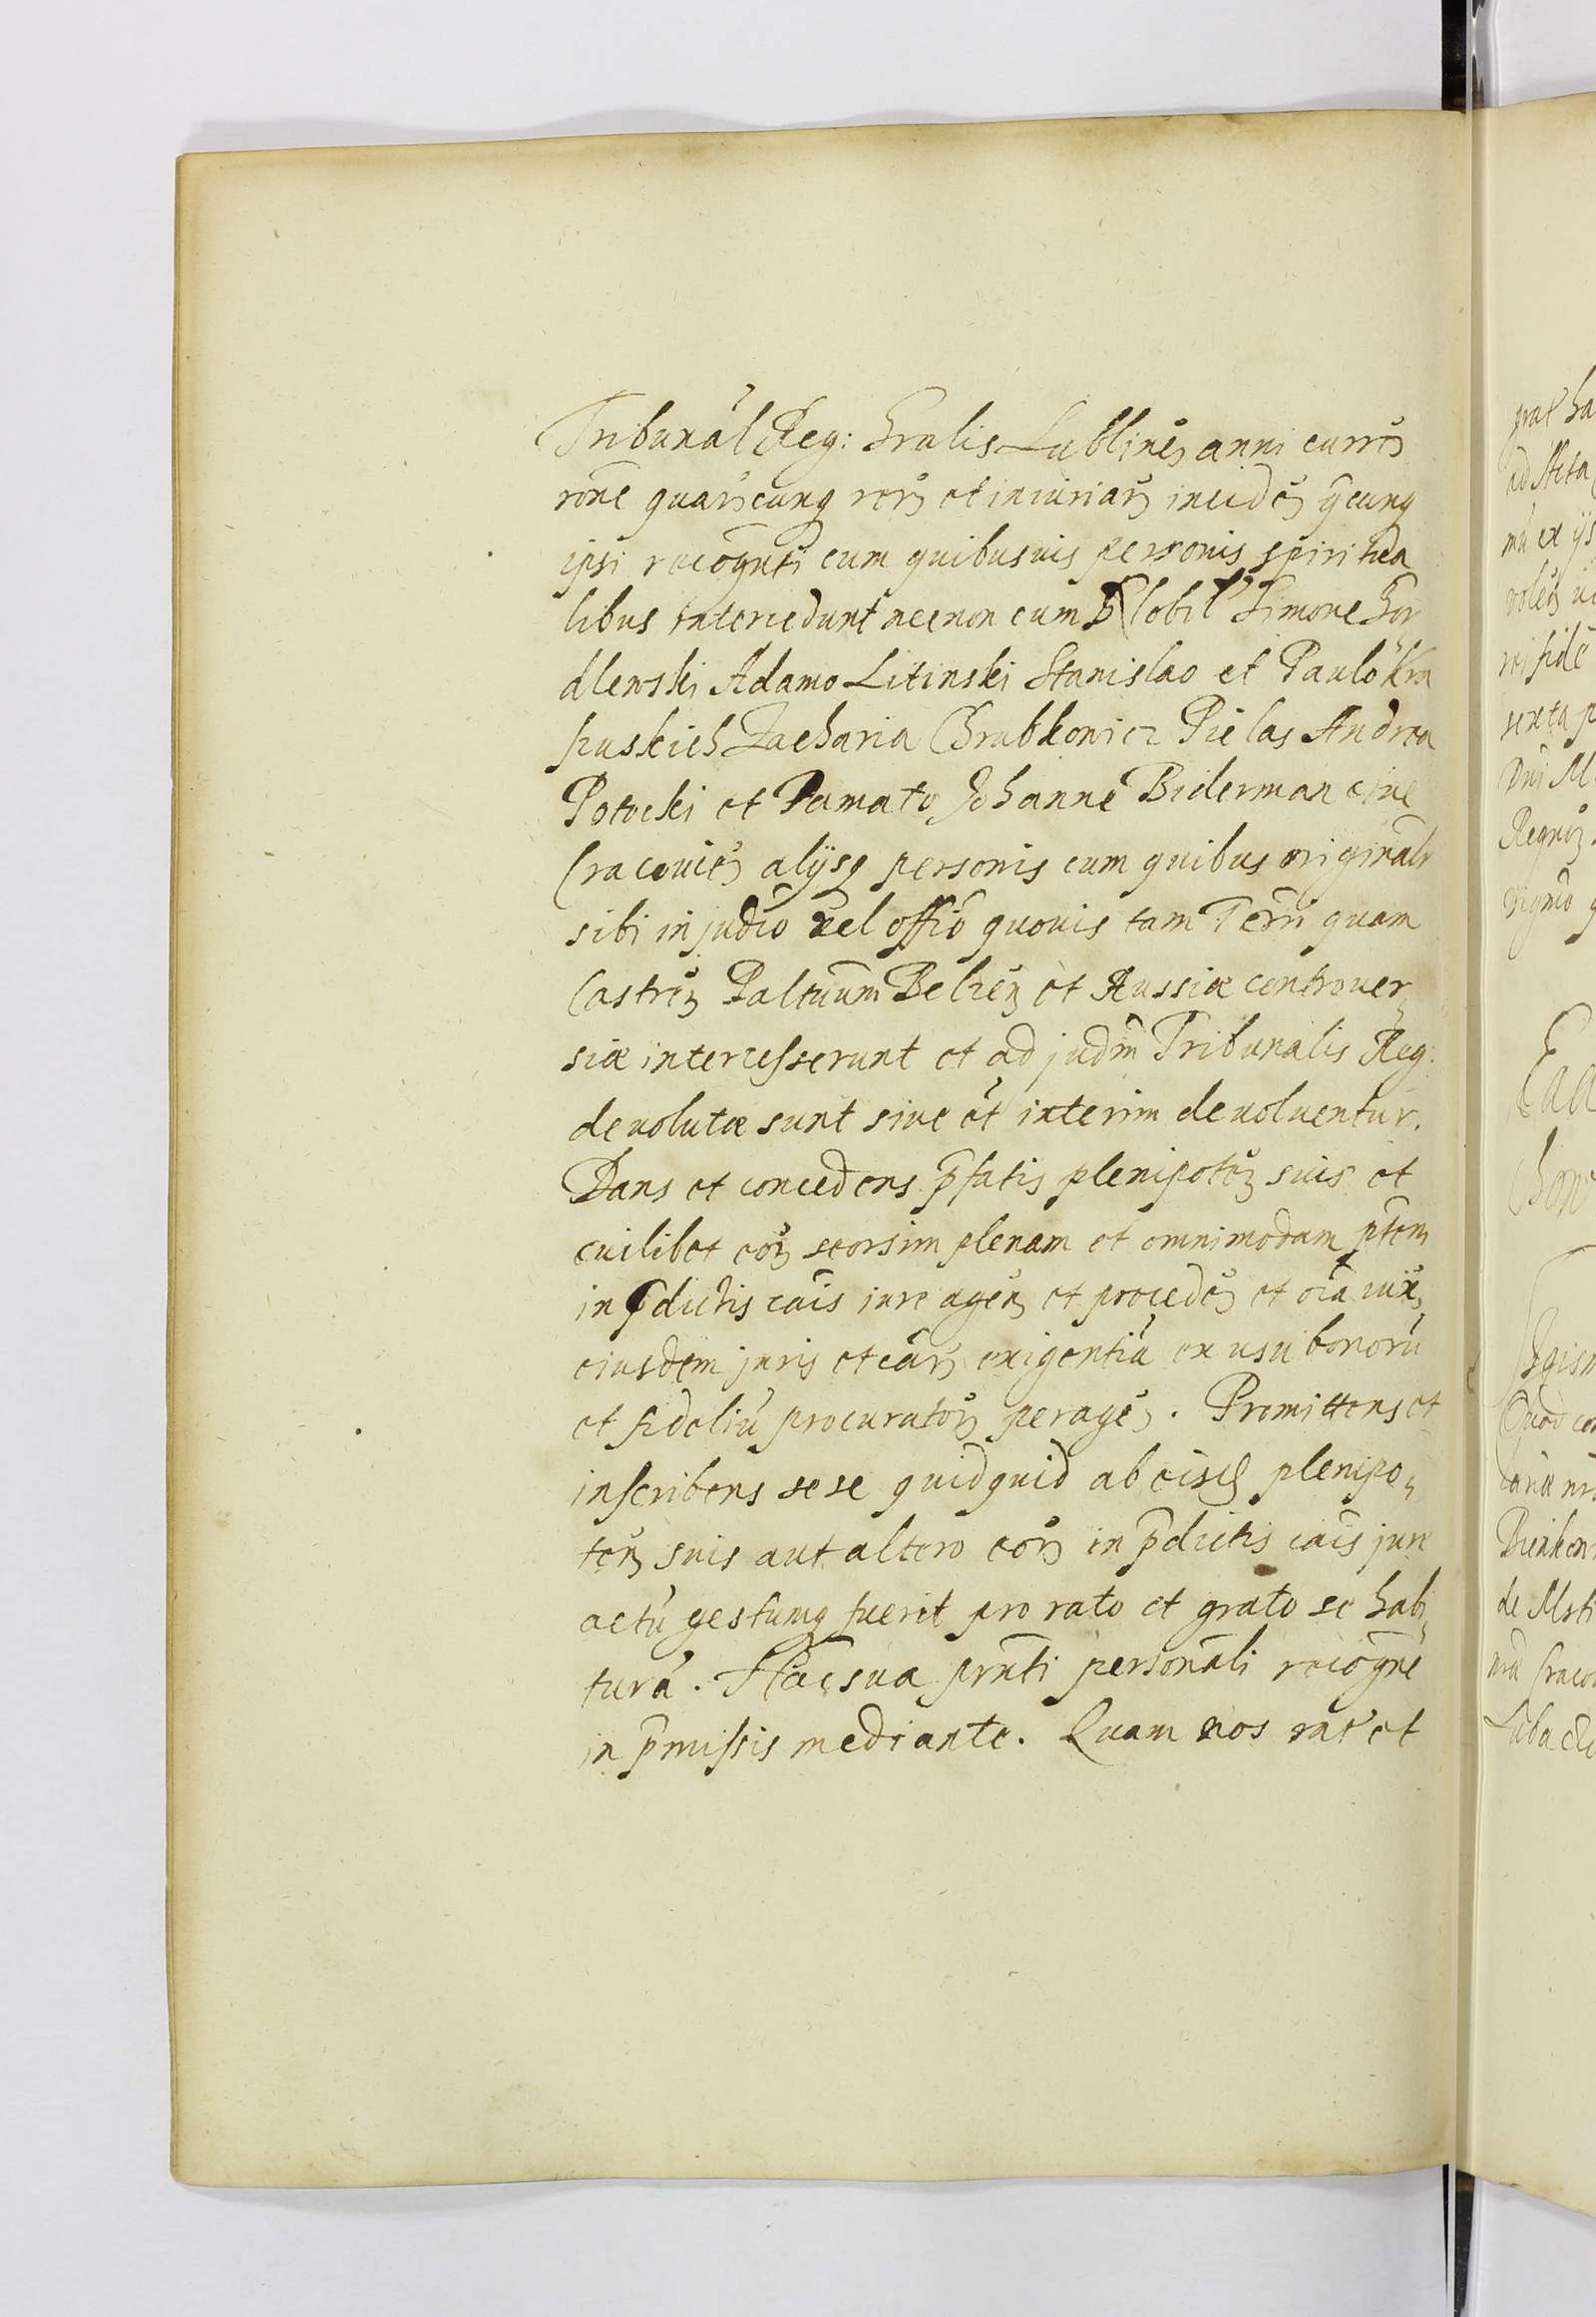 Tribunal Reg: Gralis Lublinen anni curren
rone quarucunq reru et iniuriaru inciden qcunq
ipsi recognti cum quibusuis personis spiritua
libus intercedunt necnon cum Nobil Simone
Adamo Litinski Stanislao et Paulo
Zacharia Chrabkowicz Pielas Andrea
Potocki et Famato Johanne Biderman ciue
Cracouien alijsq personis cum quibus originalr
sibi in judio uel offio quouis tam Terri quam
Castren Paltuum Belzen et Russiæ controuer,
siæ intercesserunt et ad judm Tribunalis Reg:
deuolutæ sunt siue et interim deuoluentur.
Dans et concedens pfatis plenipoten suis et
cuilibet eor seorsim plenam et omnimodam ptem
in pdictis cais iure agen et proceden et oia iux,
eiusdem juris et caru exigentiā ex usu bonorū
et fideliū procurator peragen. Promittens et
inscribens sese quidquid ab eisd plenipo,
ten suis aut altero eor in pdictis cais jure
actū gestumq fuerit pro rato et grato se habi,
turā. Hac sua prnti personali recogne
in pmissis mediante. Quam nos rat et
grat ha
ad Acta
ma ex ijs
rei fide
sexta p
Dni M
Regni
Chon
Quod con
de Msti